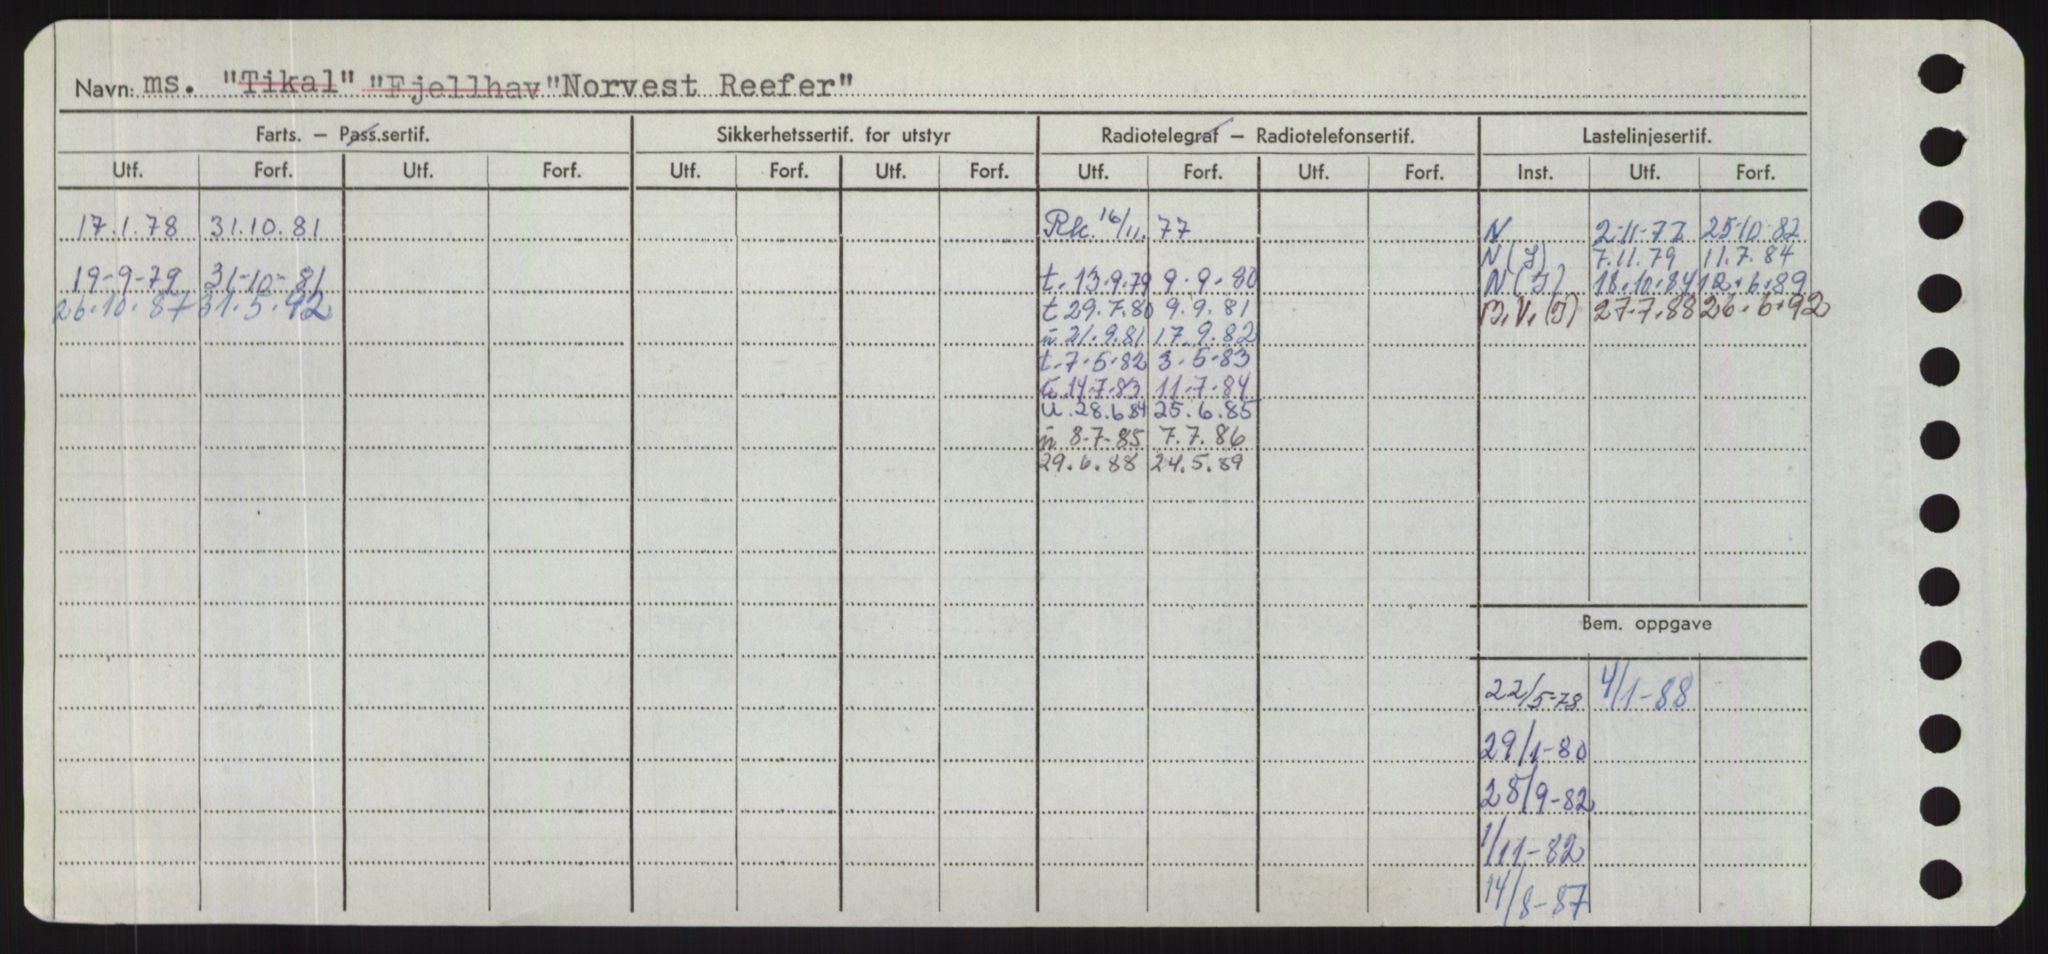 Navn: ms. "Tikal" "Fjellhav" "Norvest Reefer"
Farts. — Pass.sertif. Sikkerhetssertif. for utstyr Radiotelegraf — Radiotelefonsertif. Lastelinjesertif.
Utf. Forf. Utf. Forf. Utf. Forf. Utf. Forf. Utf. Forf. Utf. Forf. Inst. Utf. Forf.
17.1.78 31.10.81 Rk. 16/11.77 N 2-11-77 25-10-82
N(J) 7.11.79 11.7.84
19-9-79 31-10-81 t. 13.9.79 9-9-80 N(J) 18.10.84 12.6.89
26.10.87 31.5.92 t 29.7.80 9.9.81 B.V.(J) 27-7-88 26.6.92
u 21.9.81 17.9.82
t. 7-5-82 3-5-83
14-7-83 11-7-84
u. 28.6.84 25.6.85
u 8-7-85 7.7.86
29.6.88 24.5.89
Bem. oppgave
22/5-78 4/1-88
29/1-80
28/9-82
1/11-82
14/8-87